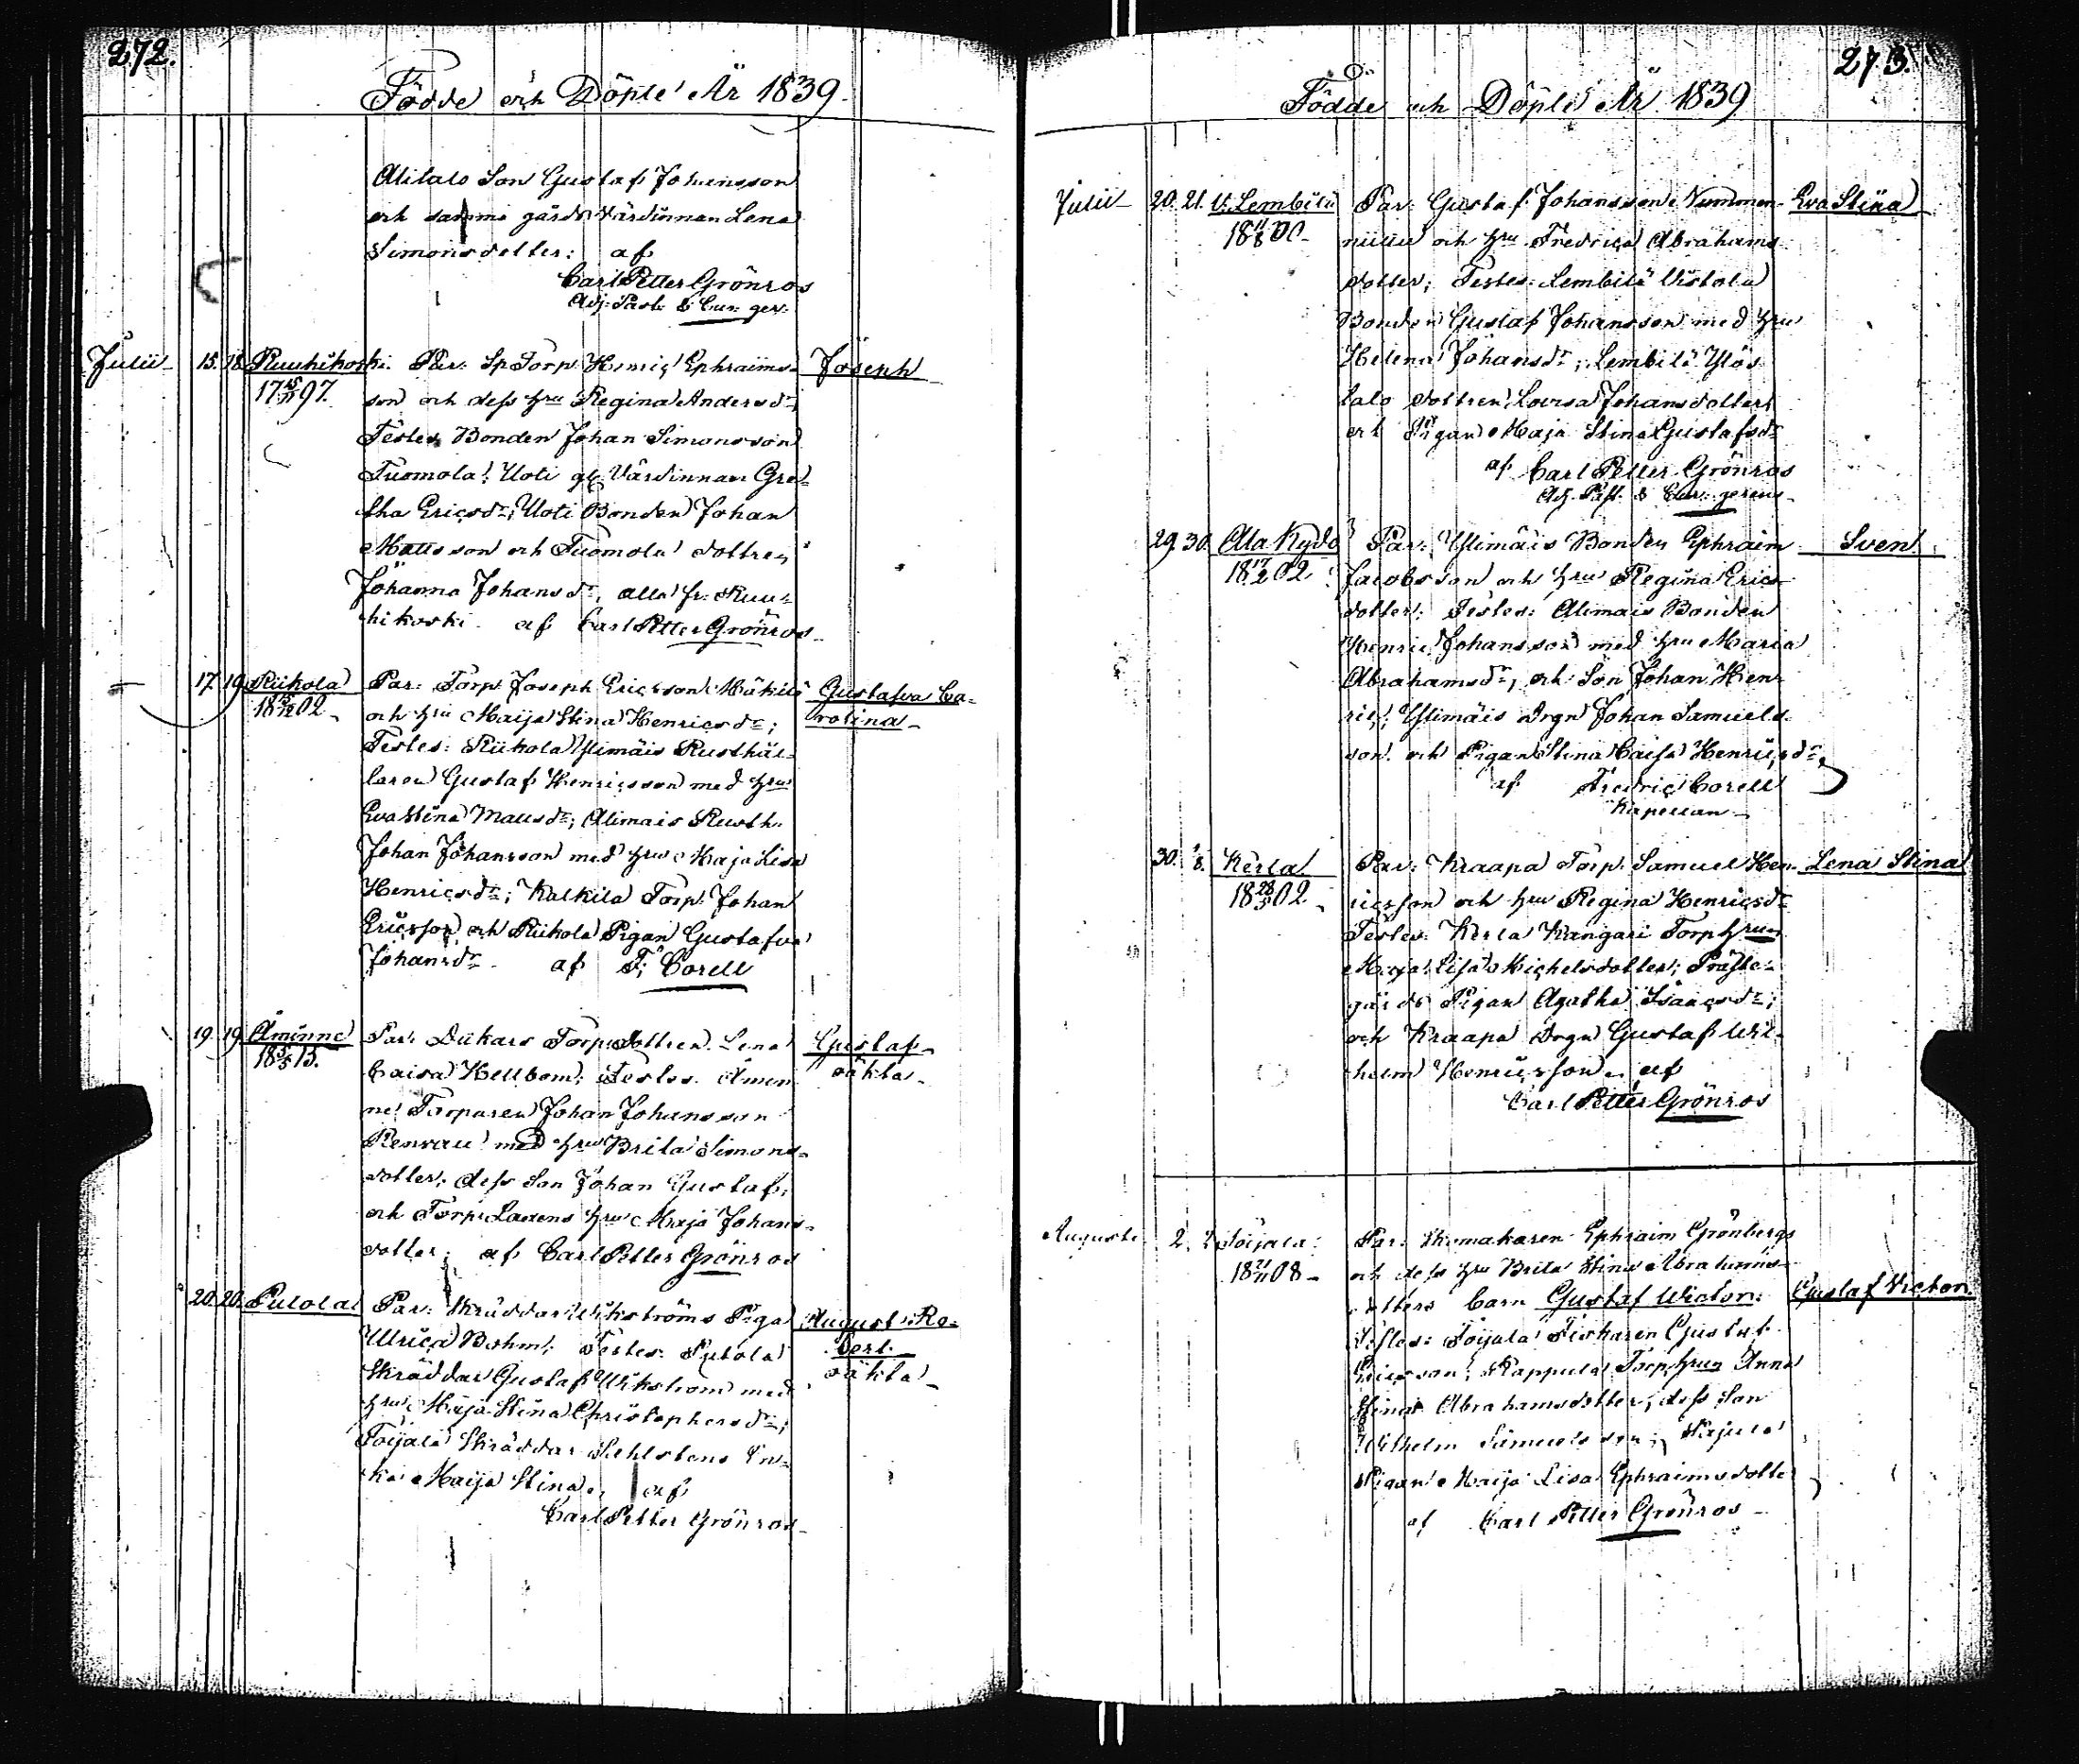 272.
Födde och Döpte År 1839.
Alitalo Son Gustaf Johansson
och samma gårds Värdinnan Lena
Simonsdotter: af
Carl Petter Grönros
Adj. Past. & Cur: ger:
Julii 15. 18. Ruuhikoski. Par: Sp Torp: Henriç Ephraims- Joseph
17 15/11 97. son och dess hru Regina Andersdr
Testes Bonden Johan Simonsson
Tuomola; Uoti gl. Värdinnan Gre-
tha Ericsdr; Uoti Bonden Johan
Mattsson och Tuomola dottren
Johanna Johansdr, alla fr: Ruu-
hikoski. af Carl Petter Grönros
17 19 Riihola Par: Torp Joseph Ericsson Mäkilä Gustafva Ca-
18 02 och hru Maija Stina Henricsdr; rolina
Testes: Riihola Ylimäis Rusthål-
laren Gustaf Henricsson med hru
Eva Stina Mattsdr; Alimais Rusth:
Johan Johansson med hru Maja Lisa
Henricsdr; Kalkila Torp: Johan
Ericsson och Riihola Pigan Gustafva
Johansdr. af F: Corell
19. 19 Åminne Par: Diikars Torp: dottren Lena Gustaf
18 13. Caisa Hellbom; Testes. Åmin- oäkta
ne Torparen Johan Johansson
med hru Brita Simons-
dotter; dess Son Johan Gustaf,
och Torp: hru Maja Johans-
dotter; af Carl Petter Grönros
20. 20. Putola Par: Skräddar Wikströms Piga August Ro-
Ulrica Bohm; Testes: Putola bert.
Skräddar Gustaf Wikström med oäkta
hru Maja Stina Christophersdr;
Toijala Skräddar Sahlstens En-
ka Maija Stina. af
Carl Petter Grönros
273.
Födde och Döpte År 1839
Julii 20. 21. U. Lembilä Par: Gustaf Johansson Nummen- Eva Stina
18 11/8 00 niitu och hru Fredrica Abrahams
dotter; Testes: Lembilä Uistola
Bonden Gustaf Johansson med hru
Helena Johansdr; Lembilä Ylös-
talo dottren Lovisa Johansdotter
och Pigan Maja Stina Gustafsdr
af Carl Petter Grönros
Adj. Past. & Cur: gerens
29. 30. Ala Kydö Par: Ylimäis Bonden Ephraim Sven
18 17/2 02 Jacobsson och hru Regina Erics-
dotter; Testes: Alimais Bonden
Henric Johansson med hru Maria
Abrahamsdr, och Son Johan Hen-
ric; Ylimäis drgn Johan Samuels-
son och Pigan Stina Caisa Henricsdr,
af Fredric Corell
Kapellan
30. 1/8. Kerla Par: Kraapa Torp: Samuel Hen- Lena Stina
18 28/5 02 ricsson och hru Regina Henricsdr
Testes: Kerla Kangari Torp hrun
Maja Lisa Michelsdotter; Präste-
gårds Pigan Agatha Isaacsdr;
och Kraapa Drgn Gustaf Wil-
helm Henricsson. af
Carl Petter Grönros
Augusti 2. Toijala Par: Skomakaren Ephraim Grönbergs
18 08 och dess hru Brita Stina Abrahams-
dotters barn Gustaf Wictor: Gustaf Victor.
Testes: Toijala Fiskaren Gustaf
Ericsson; Kappula Torp hrun Anna
Stina Abrahamsdotter, dess Son
Wilhelm Samuelsson,
Pigan Maija Lisa Ephraimsdotter
af Carl Petter Grönros